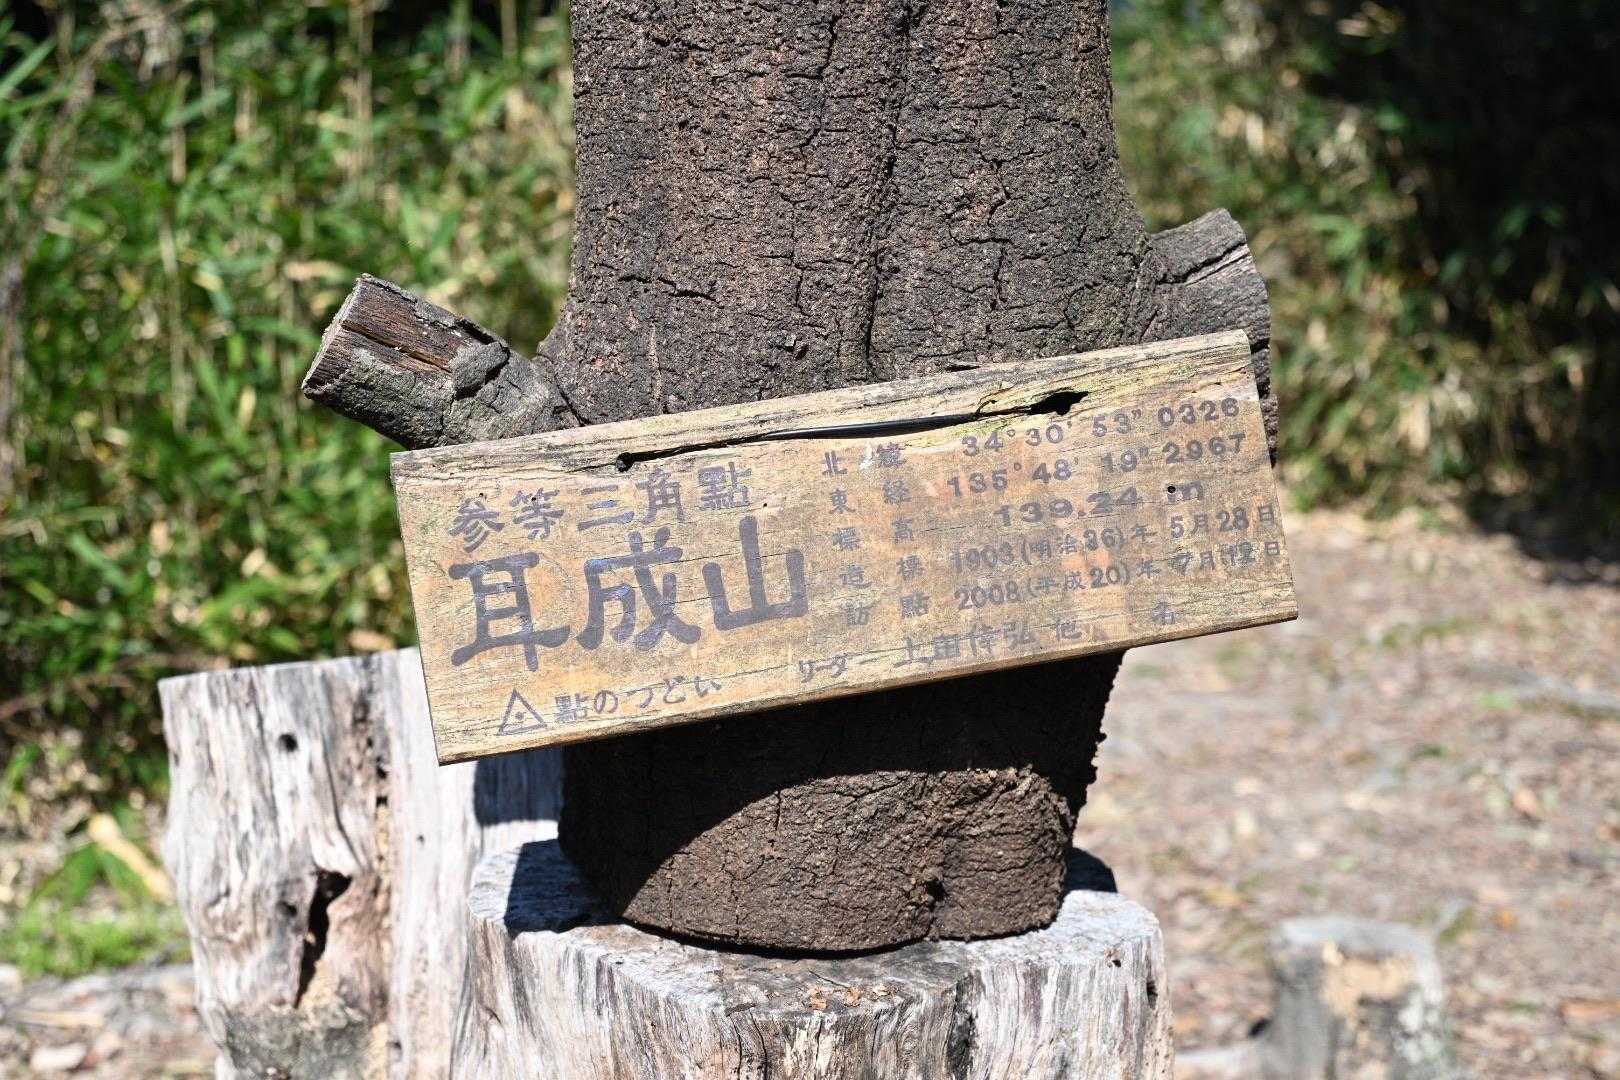 参等三角點
耳成山
北緯 34°30'53"0326
東経 135°48'19"2967
標高 139.24 m
造標 1903(明治36)年 5月28日
訪點 2008(平成20)年 月12日
點のつどい リーダー 上 弘 他 名